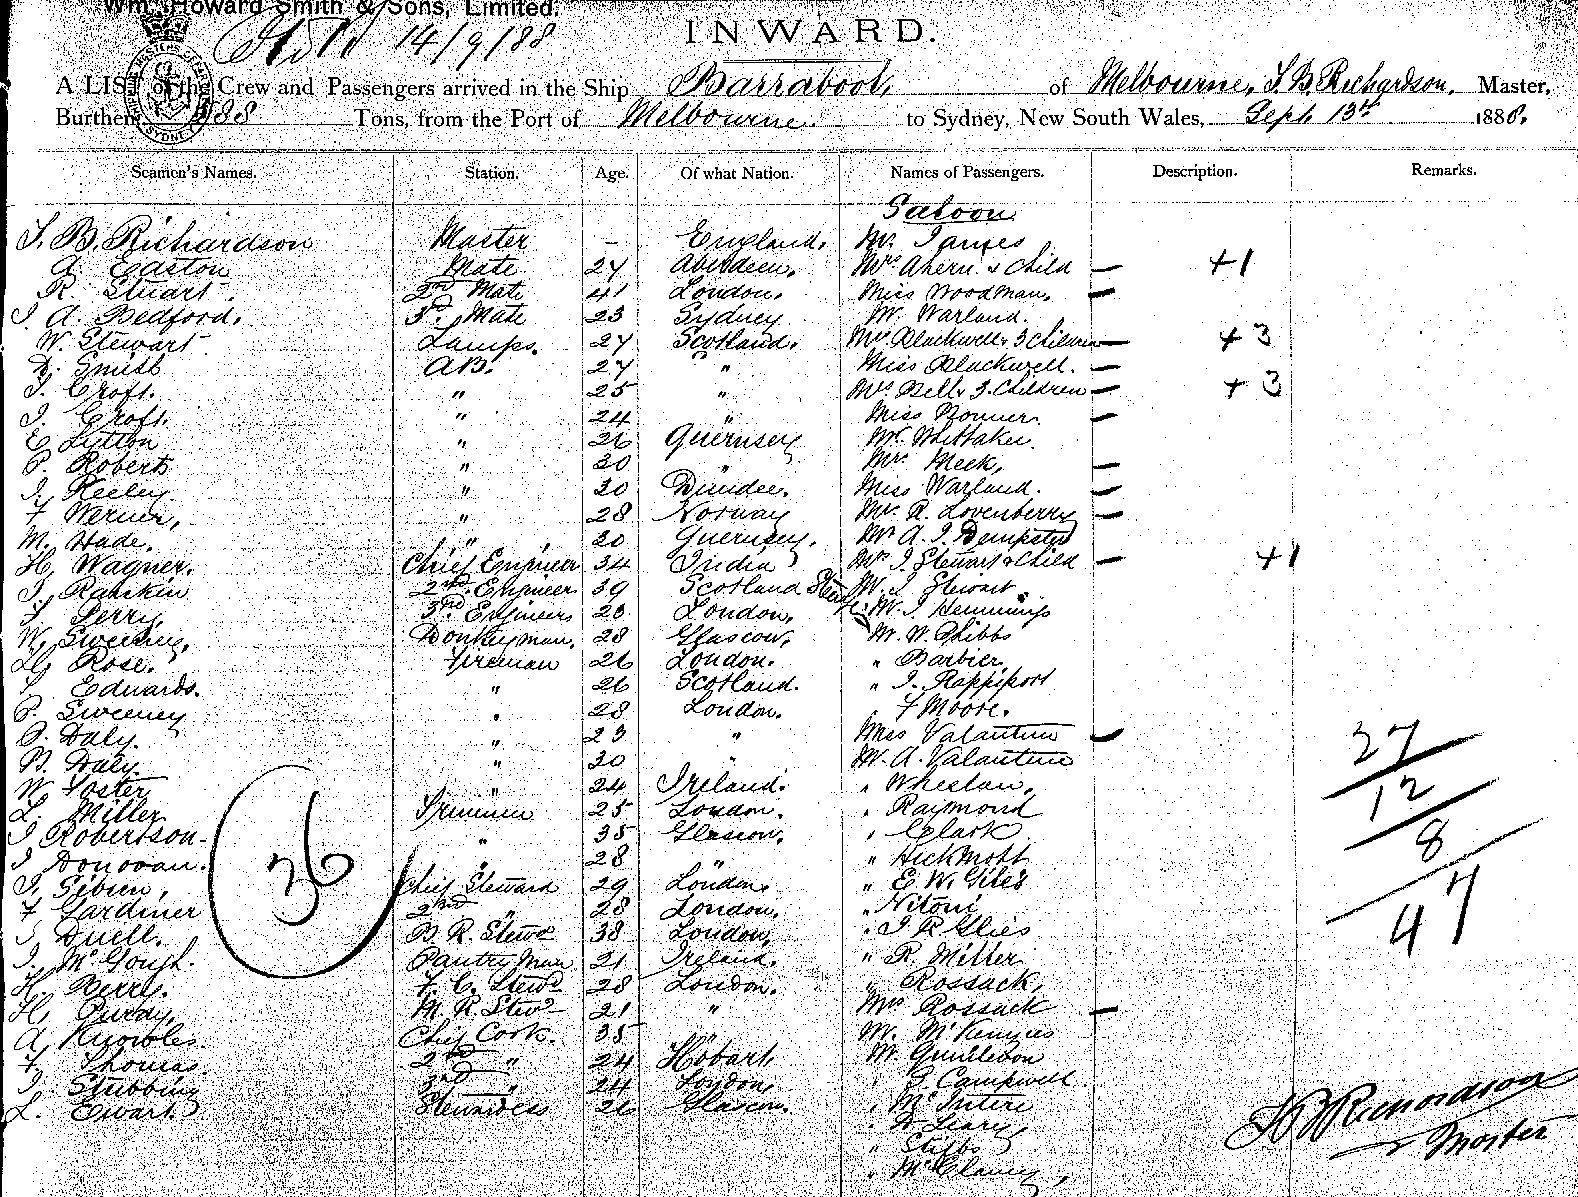 Wm. Howard Smith & Sons, Limited.
14/9/88
INWARD.
A LIST of the Crew and Passengers arrived in the Ship Barrabool, of Melbourne, T. B. Richardson, Master,
Burthen 988 Tons, from the Port of Melbourne to Sydney, New South Wales, Sept 13th 1888.
Seamen's Names. Station. Age. Of what Nation. Names of Passengers. Description. Remarks.
Saloon
T. B. Richardson Master - England. Mr. James
A. Easton Mate 27 Aberdeen. Mrs Ahern & Child — +1
R. Stuart. 2nd Mate 41 London. Miss Woodman. —
J. A. Bedford. 3rd Mate 23 Sydney Mr. Warland.
W. Stewart Lamps. 27 Scotland. Mrs Blackwell & 3 Children — +3
D. Smith AB. 27 " Miss Blackwell. —
T. Croft. " 25 " Mrs Bell & 3 Children — +3
J. Croft. " 24 " Miss Bonner. —
E. Lutton " 26 Guernsey Mr. Whittaker.
P. Roberts " 30 " Mrs Meek, —
J. Keeley. " 30 Dundee. Miss Warland. —
F. Werner, " 28 Norway Mrs R. Lovenberry —
M. Hade. " 20 Guernsey. Mr A. J. Dempster
H. Wagner. Chief Engineer 34 India Mrs J. Stewart & Child — +1
J. Rankin 2nd Engineer 39 Scotland Mr. J. Stewart.
Perry. 3rd Engineers 23 London. Mr. J. Hemmings
W. Sweeney. Donkeyman. 28 Glascow. Mr. W. Phibbs
H. Rose. Fireman 26 London. " Barbier.
Edwards. " 26 Scotland. " J. Rappiport
P. Sweeney " 28 London. " F Moore.
P. Daly. " 23 " Miss Valantine —
B. Daly. " 30 " Mr. A. Valantine
W Foster " 24 Ireland. " Whelan.
L. Miller Trimmer 25 London. " Raymond
J Robertson " 35 Glascow. " Clark
J Donovan. " 28 " " Hickmott
J. Chief Steward 29 London. " E. W. Giles
F Gardiner 2nd " 28 London. " Nitoni
J Duell. B. R. Stewd 38 London, " J R Glies
J. McGough. Pantry Man 21 Ireland. " R. Miller
H. Berry. F. C. Stewd 28 London. " Rossack,
H. Purdy, M. R. Stewd 21 " Mrs Rossack —
A Knowles. Chief Cook. 35 " Mr. McKenzies
F. Thomas. 2nd " 24 Hobart. Mr
J. Stubbing 3rd " 24 London, " Campwell
L. Ewart. Stewardess 26 Glascow. " McIntire
" Leary
" Stibbs
" McClaney,
36
27
12
8
47
T B Richardson
Master